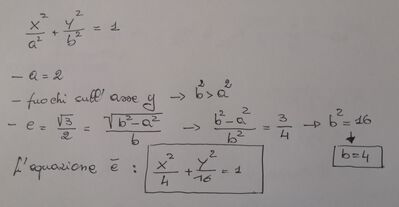 x²/a² + y²/b² = 1
- a = 2
- fuochi sull'asse y → b² > a²
- e = √3/2 = √(b²-a²)/b → (b²-a²)/b² = 3/4 → b² = 16
↓
b = 4
L'equazione è : x²/4 + y²/16 = 1